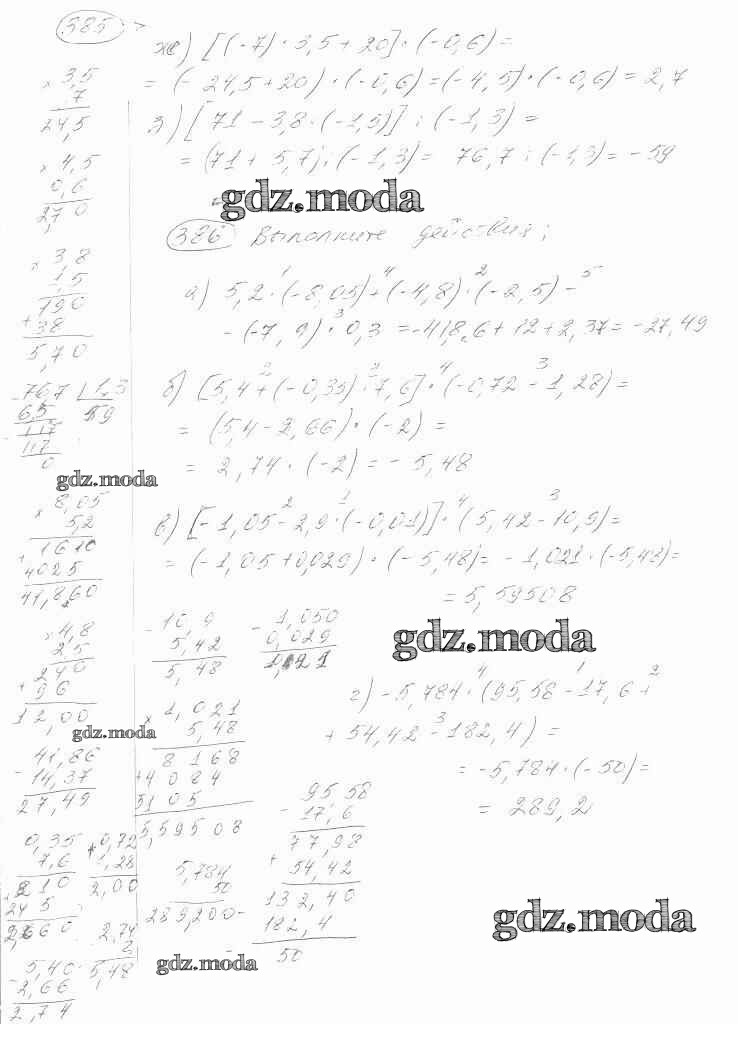 385
ж) [(-7)·3,5+20]·(-0,6)=
= (-24,5+20)·(-0,6)=(-4,5)·(-0,6)=2,7
з) [71-3,8·(-1,5)]:(-1,3)=
= (71+5,7):(-1,3)= 76,7:(-1,3)=-59
gdz.moda
386 Выполните действия;
а) 5,2·(-8,05)+(-4,8)·(-2,5)-
-(-7,9)·0,3=-41,8.6+12+2,37=-27,49
б) [5,4+(-0,35)·7,6]·(-0,72-1,28)=
= (5,4-2,66)·(-2)=
= 2,74·(-2)=-5,48
в) [-1,05-2,9·(-0,01)]·(5,42-10,9)=
= (-1,05+0,029)·(-5,48)= -1,021·(-5,48)=
= 5,59508
gdz.moda
г) -5,784·(95,58-17,6+
+54,42-182,4)=
= -5,784·(-50)=
= 289,2
gdz.moda
× 3,5
7
24,5
× 4,5
0,6
2,70
× 3,8
1,5
190
+ 38
5,70
- 76,7 | 1,3
65 59
- 117
117
0
gdz.moda
× 8,05
5,2
+ 1610
4025
41,860
× 4,8
2,5
+ 240
96
12,00
gdz.moda
- 41,86
14,37
27,49
0,35
7,6
210
245
2,660
+ 0,72
1,28
2,00
2,74
2
5,48
- 5,40
2,66
2,74
- 10,9
5,42
5,48
- 1,050
0,029
1,021
× 1,021
5,48
8168
+ 4084
5105
5,59508
5,784
50
289,200
gdz.moda
95,58
- 17,6
77,98
+ 54,42
132,40
- 182,4
50